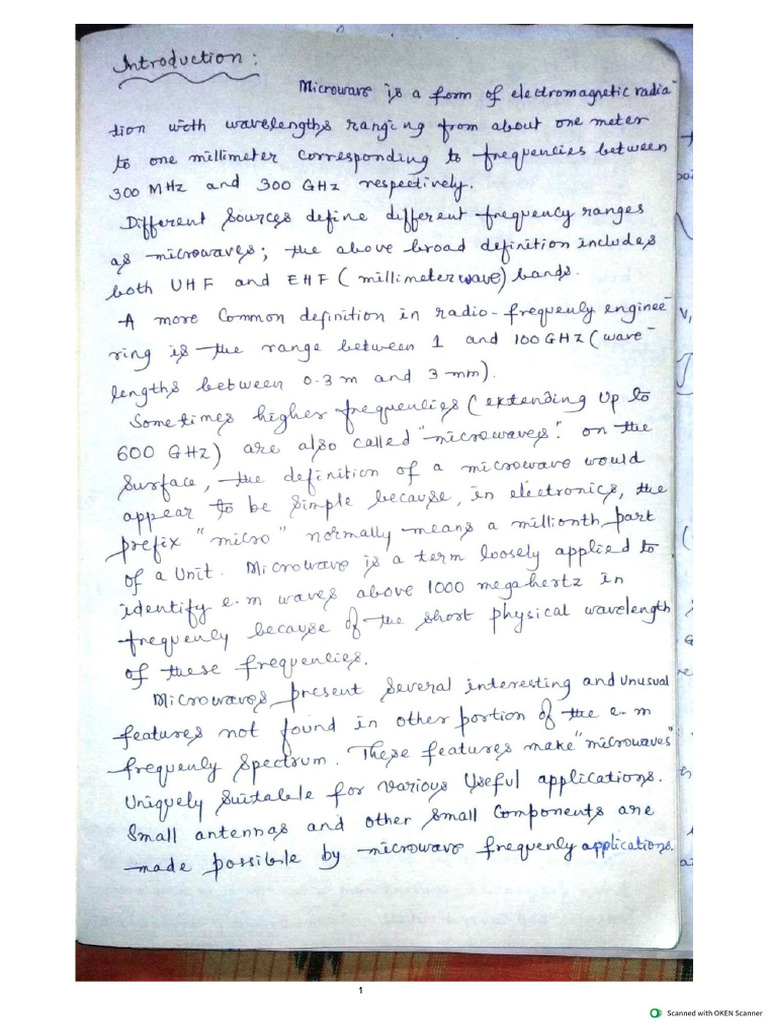 Introduction:
Microwave is a form of electromagnetic radia-
tion with wavelengths ranging from about one meter
to one millimeter corresponding to frequencies between
300 MHz and 300 GHz respectively.
Different Sources define different frequency ranges
as microwaves; the above broad definition includes
both UHF and EHF (millimeter wave) bands.
A more Common definition in radio-frequenly enginee-
ring is the range between 1 and 100 GHz (wave-
lengths between 0.3 m and 3 mm).
Sometimes higher frequencies (extending Up to
600 GHz) are also called "microwaves". on the
Surface, the definition of a microwave would
appear to be Simple because, in electronics, the
prefix "micro" normally means a millionth part
of a Unit. Microwave is a term loosely applied to
identify e.m waves above 1000 megahertz in
frequenly because of the short physical wavelength
of these frequencies.
Microwaves present Several interesting and unusual
features not found in other portion of the e.m
frequenly Spectrum. These features make "microwaves"
Uniquely Suitable for various Useful applications.
Small antennas and other Small Components are
made possible by microwave frequenly applications.
1
Scanned with OKEN Scanner